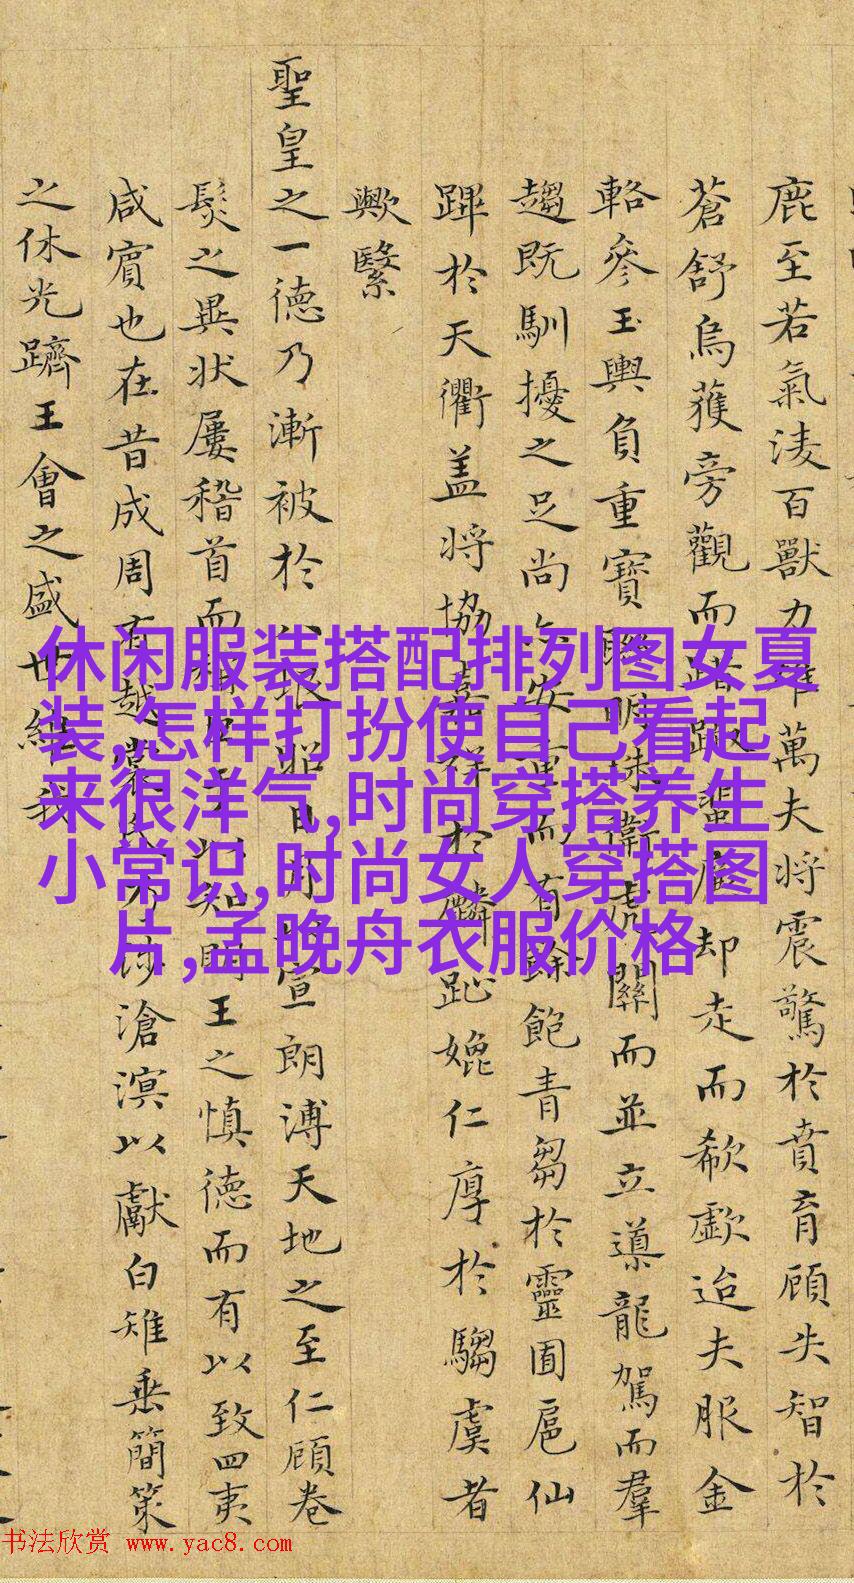 鹿至若氣淩百獸力雄萬夫將震驚於賁育顧失智於
蒼舒烏獲旁觀而踧蜚廉却走而欷歔迨夫服金
輅參玉輿負重寶明珠衛虎關而並立導龍駕而羣
趨既馴擾之足尚安重而有餘飽青芻於靈囿扈仙
蹕於天衢盖將協嘉祥於麟趾媲仁厚於騶虞者
歟繄
聖皇之一德乃漸被於八垠昭日月宣朗溥天地之至仁顧卷
髮之異状屢稽首而稱臣于以知明王之慎德而有以致四夷
咸賓也在昔成周有越裳氏涉滄溟以獻白雉垂簡策
之休光躋王會之盛世紀我
休闲服装搭配排列图女夏
装,怎样打扮使自己看起
来很洋气,时尚穿搭养生
小常识,时尚女人穿搭图
片,孟晚舟衣服价格
书法欣赏 www.yac8.com